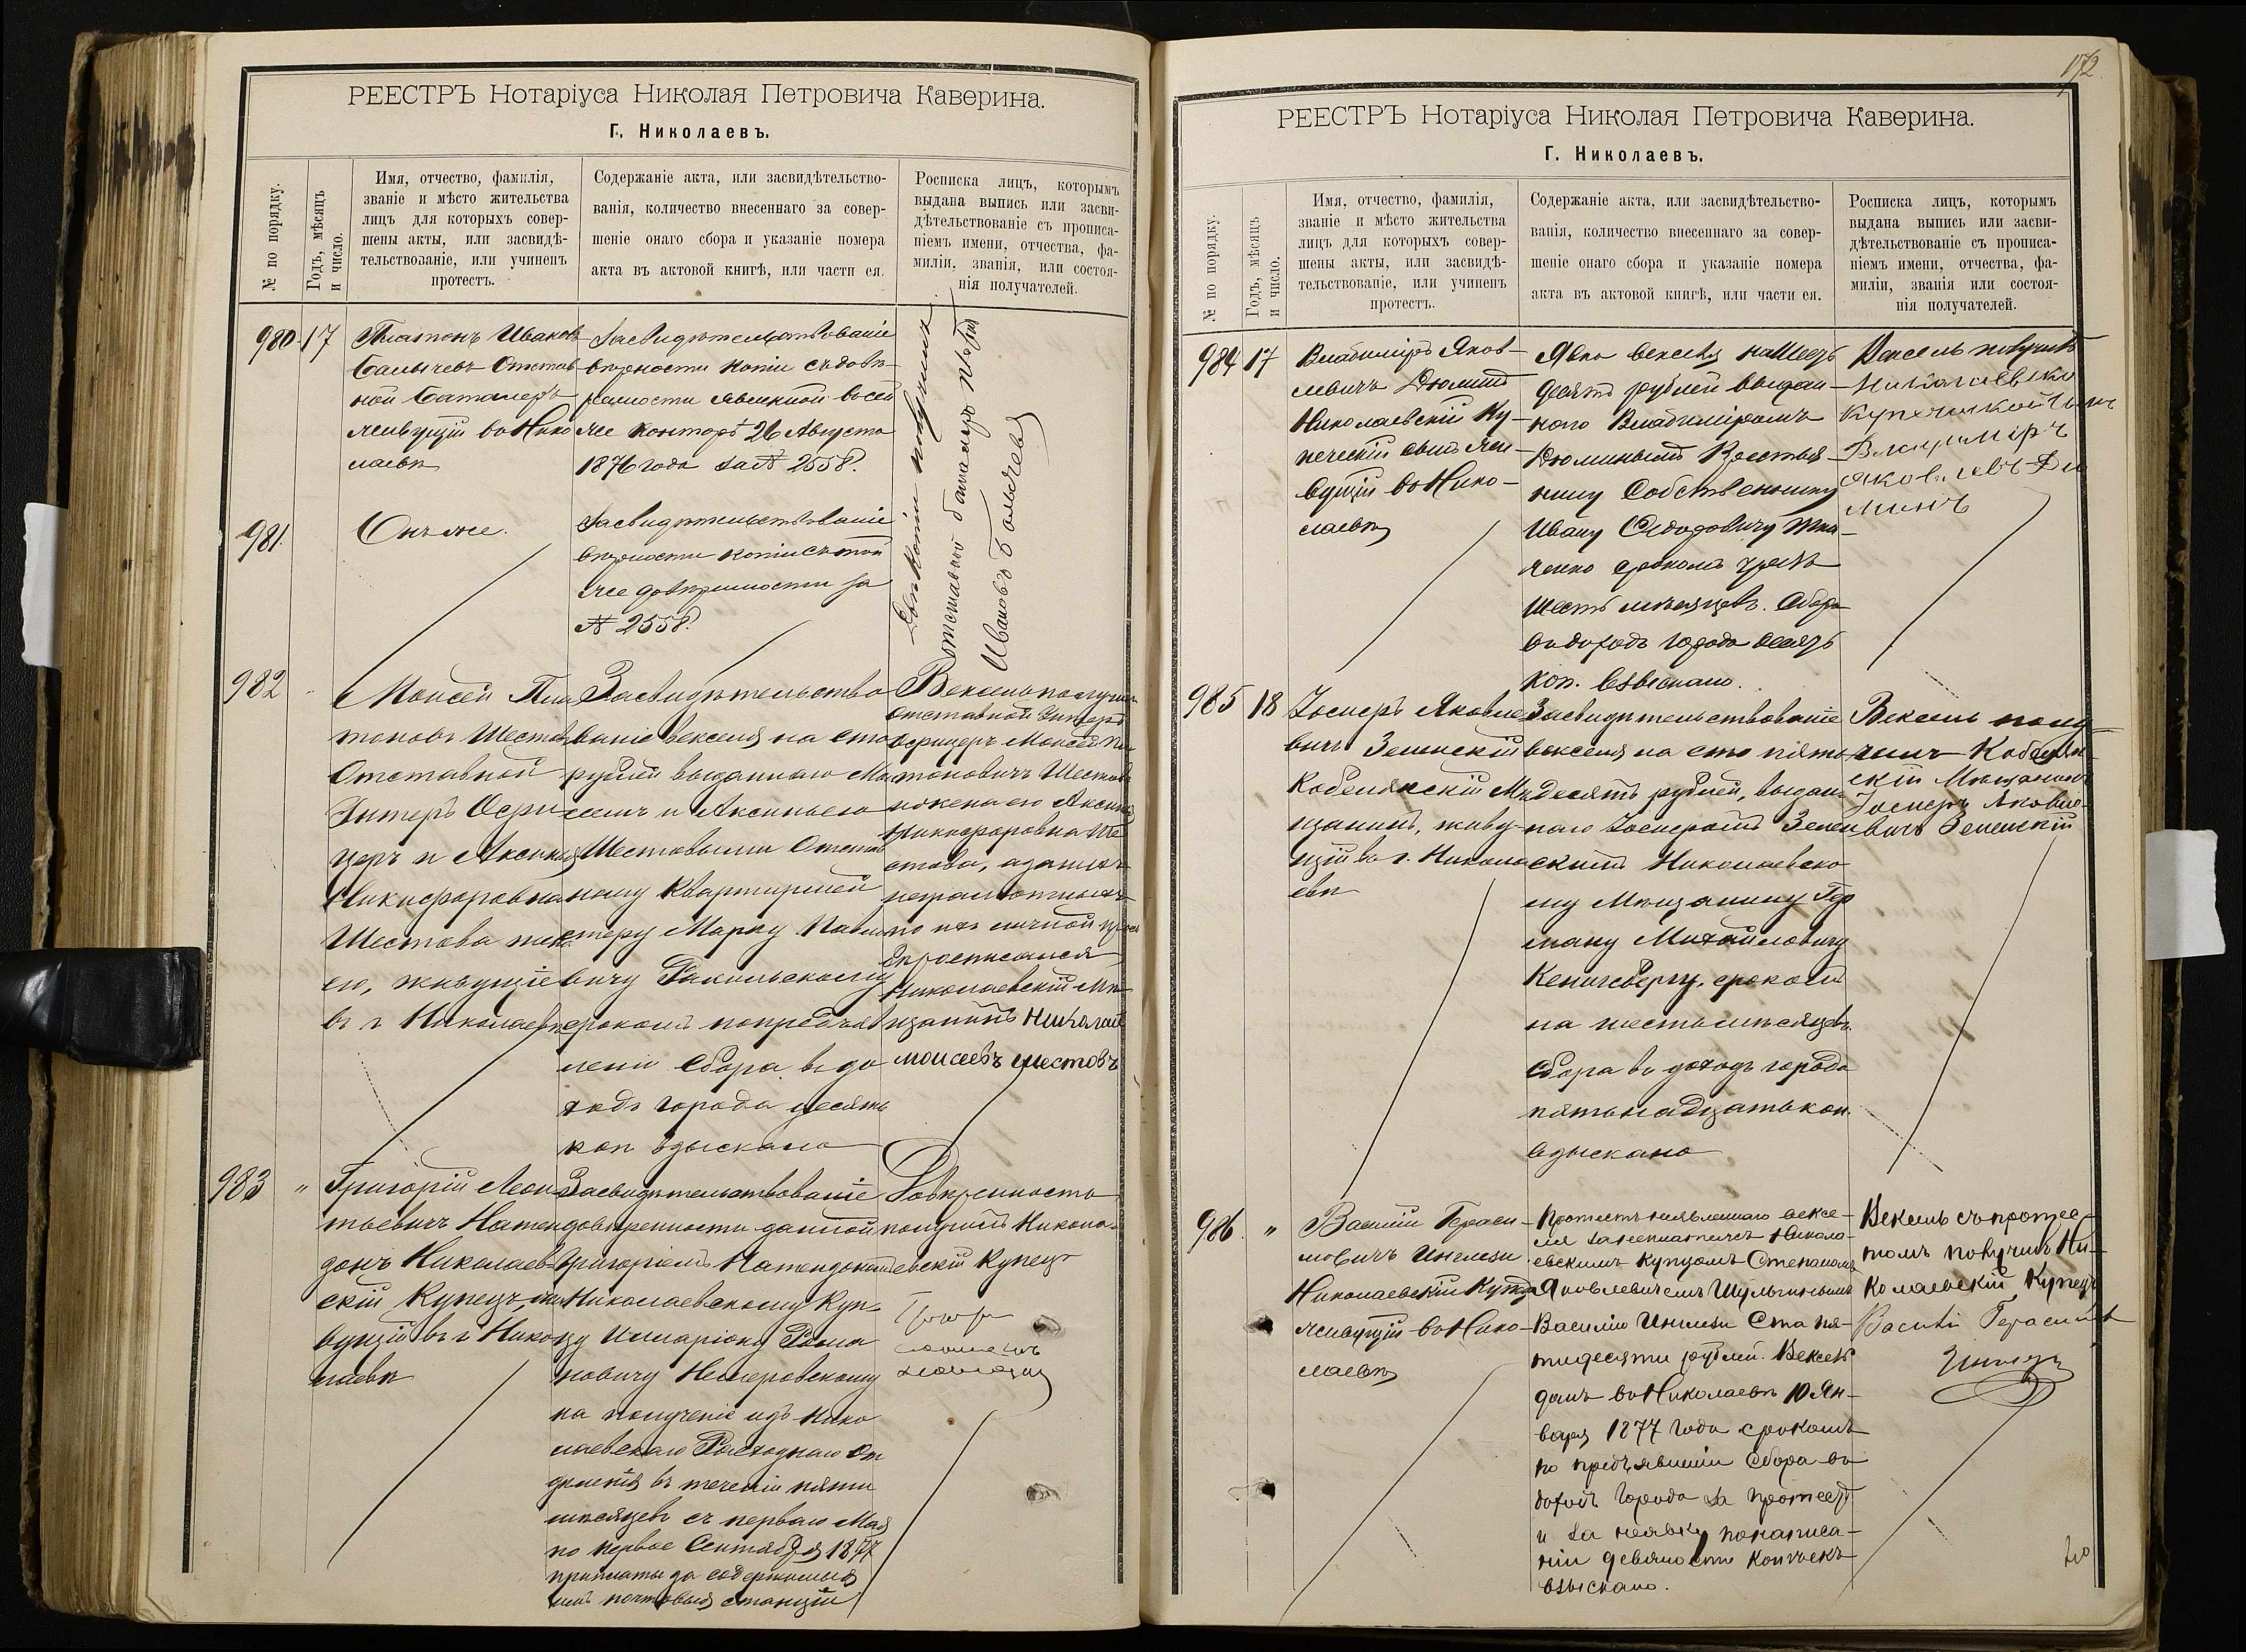 РЕЕСТРЪ Нотаріуса Николая Петровича Каверина.
Г. Николаевъ.
№ по порядку.
Годъ, мѣсяцъ
и число.
Имя, отчество, фамилія,
званіе и мѣсто жительства
лицъ для которыхъ совер-
шены акты, или засвидѣ-
тельствованіе, или учиненъ
протестъ.
Содержаніе акта, или засвидѣтельство-
ванія, количество внесеннаго за совер-
шеніе онаго сбора и указаніе номера
акта въ актовой книгѣ, или части ея.
Росписка лицъ, которымъ
выдана выпись или засви-
дѣтельствованіе съ прописа-
ніемъ имени, отчества, фа-
миліи, званія, или состоя-
нія получателей.
980. 17
Платонъ Ивановъ
Балычевъ Отстав-
ной баталеръ
живущій въ Нико
лаевѣ
Засвидѣтельствованіе
вѣрности копіи съ довѣ-
ренности явленной въ сей
же конторѣ 26 Августа
1876 года за № 2558.
981.
Онъ же.
Засвидѣтельствованіе
вѣрности копіи съ той
же довѣренности за
№ 2558.
копіи получилъ
отставной баталеръ
Ивановъ Балычевъ
982
Моисей Пла
тоновъ Шестовъ
Отставной
Унтеръ Офи
церъ и Аксинья
Никифоровна
Шестова жена
его, живущіе
въ г Николаевѣ
Засвидѣтельство
ваніе векселя на сто
рублей выданнаго Мо
исеемъ и Аксиньею
Шестовыми Отстав
ному Квартирмей
стеру Марку Павло
вичу
срокомъ по предъяв
леніи Сбора въ до
ходъ города десять
коп взыскано
Вексель получили
отставной Унтеръ
офицеръ Моисей Пла
тоновичъ Шестовъ
и жена его Аксинья
Никифоровна Ше
стова, а за нихъ
неграмотныхъ
по ихъ личной прось
бѣ росписался
Николаевскій Мѣ
щанинъ Николай
Моисеевъ Шестовъ
983 "
Григорій Леон
тьевичъ Натан
донъ Николаев
скій Купецъ, жи
вущій въ г Нико
лаевѣ
Засвидѣтельствованіе
довѣренности данной
Григоріемъ
Николаевскому Куп
цу Илларіону Рома
новичу Немеровскому
на полученіе изъ Нико
лаевскаго Расходнаго От
дѣленія въ теченіи пяти
мѣсяцевъ съ перваго Мая
по первое Сентября 1877
приплаты за содержимыя
имъ почтовыя станціи
Довѣренность
получилъ Никола-
евскій Купецъ
172.
РЕЕСТРЪ Нотаріуса Николая Петровича Каверина.
Г. Николаевъ.
№ по порядку.
Годъ, мѣсяцъ
и число.
Имя, отчество, фамилія,
званіе и мѣсто жительства
лицъ для которыхъ совер-
шены акты, или засвидѣ-
тельствованіе, или учиненъ
протестъ.
Содержаніе акта, или засвидѣтельство-
ванія, количество внесеннаго за совер-
шеніе онаго сбора и указаніе номера
акта въ актовой книгѣ, или части ея.
Росписка лицъ, которымъ
выдана выпись или засви-
дѣтельствованіе съ прописа-
ніемъ имени, отчества, фа-
миліи, званія или состоя-
нія получателей.
984 17
Владиміръ Яков-
левичъ Дюминъ
Николаевскій Ку-
печескій сынъ жи-
вущій въ Нико-
лаевѣ
Явка векселя на шесть
десятъ рублей выдан-
наго Владиміромъ
Дюминымъ Крестья-
нину Собственнику
Ивану Ѳедоровичу
срокомъ чрезъ
шесть мѣсяцевъ. Сбора
въ доходъ города шесть
коп. взыскано.
Вексель получилъ
Николаевскій
купеческой сынъ
Владиміръ
Яковлевъ Дю
минъ
985 18
Іосиферъ Яковле
вичъ Зеленскій
Кобелякскій Мѣ
щанинъ, живу-
щій въ г. Никола
евѣ
Засвидѣтельствованіе
векселя на сто пять
десятъ рублей, выдан
наго Зелен
скимъ Николаевско
му Мѣщанину Гер
ману Михайловичу
Кенигсбергу, срокомъ
на шесть мѣсяцевъ.
Сбора въ доходъ города
пятьнадцать коп.
взыскано
Вексель полу
чилъ Кобеляк-
скій Мѣщанинъ
Яковле-
вичъ Зеленскій
986. "
Василій Гераси-
мовичъ Инглези
Николаевскій Купецъ
живущій въ Нико-
лаевѣ
Протестъ неявленнаго вексе-
ля за неплатежъ Никола-
евскимъ Купцомъ Степаномъ
Яковлевичемъ Шульгинымъ
Василію Инглези Ста пя-
тидесяти рублей. Вексель
данъ въ Николаевѣ 10 Ян-
варя 1877 года срокомъ
по предъявленіи Сбора въ
доходъ Города за протестъ
и за неявку по написа-
ніи девяносто копѣекъ
взыскано.
Вексель съ протес-
томъ получилъ Ни-
колаевскій Купецъ
Василій Герасимов